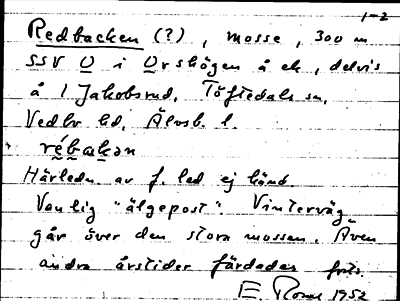 1-2
Redbacken (?), mosse, 300 m
SSV U i Urskogen å ek, delvis
å 1 Jakobsrud, Töftedals sn,
Vedbo hd, Älvsb. l.
rébakən
Härledn. av f. led ej känd.
Vanlig "älgepost". Vinterväg
går över den stora mossen. Även
andra årstider färdades
E. 1952